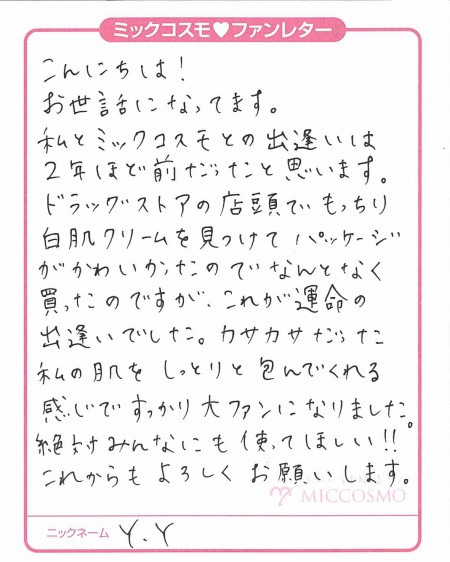 ミックコスモ♥ファンレター
こんにちは！
お世話になってます。
私とミックコスモとの出逢いは
2年ほど前だったと思います。
ドラッグストアの店頭でもっちり
白肌クリームを見つけて パッケージ
がかわいかったのでなんとなく
買ったのですが、これが運命の
出逢いでした。カサカサだった
私の肌をしっとりと包んでくれる
感じですっかり大ファンになりました。
絶対みんなにも使ってほしい!!
これからもよろしくお願いします。
MICCOSMO
ニックネーム Y.Y